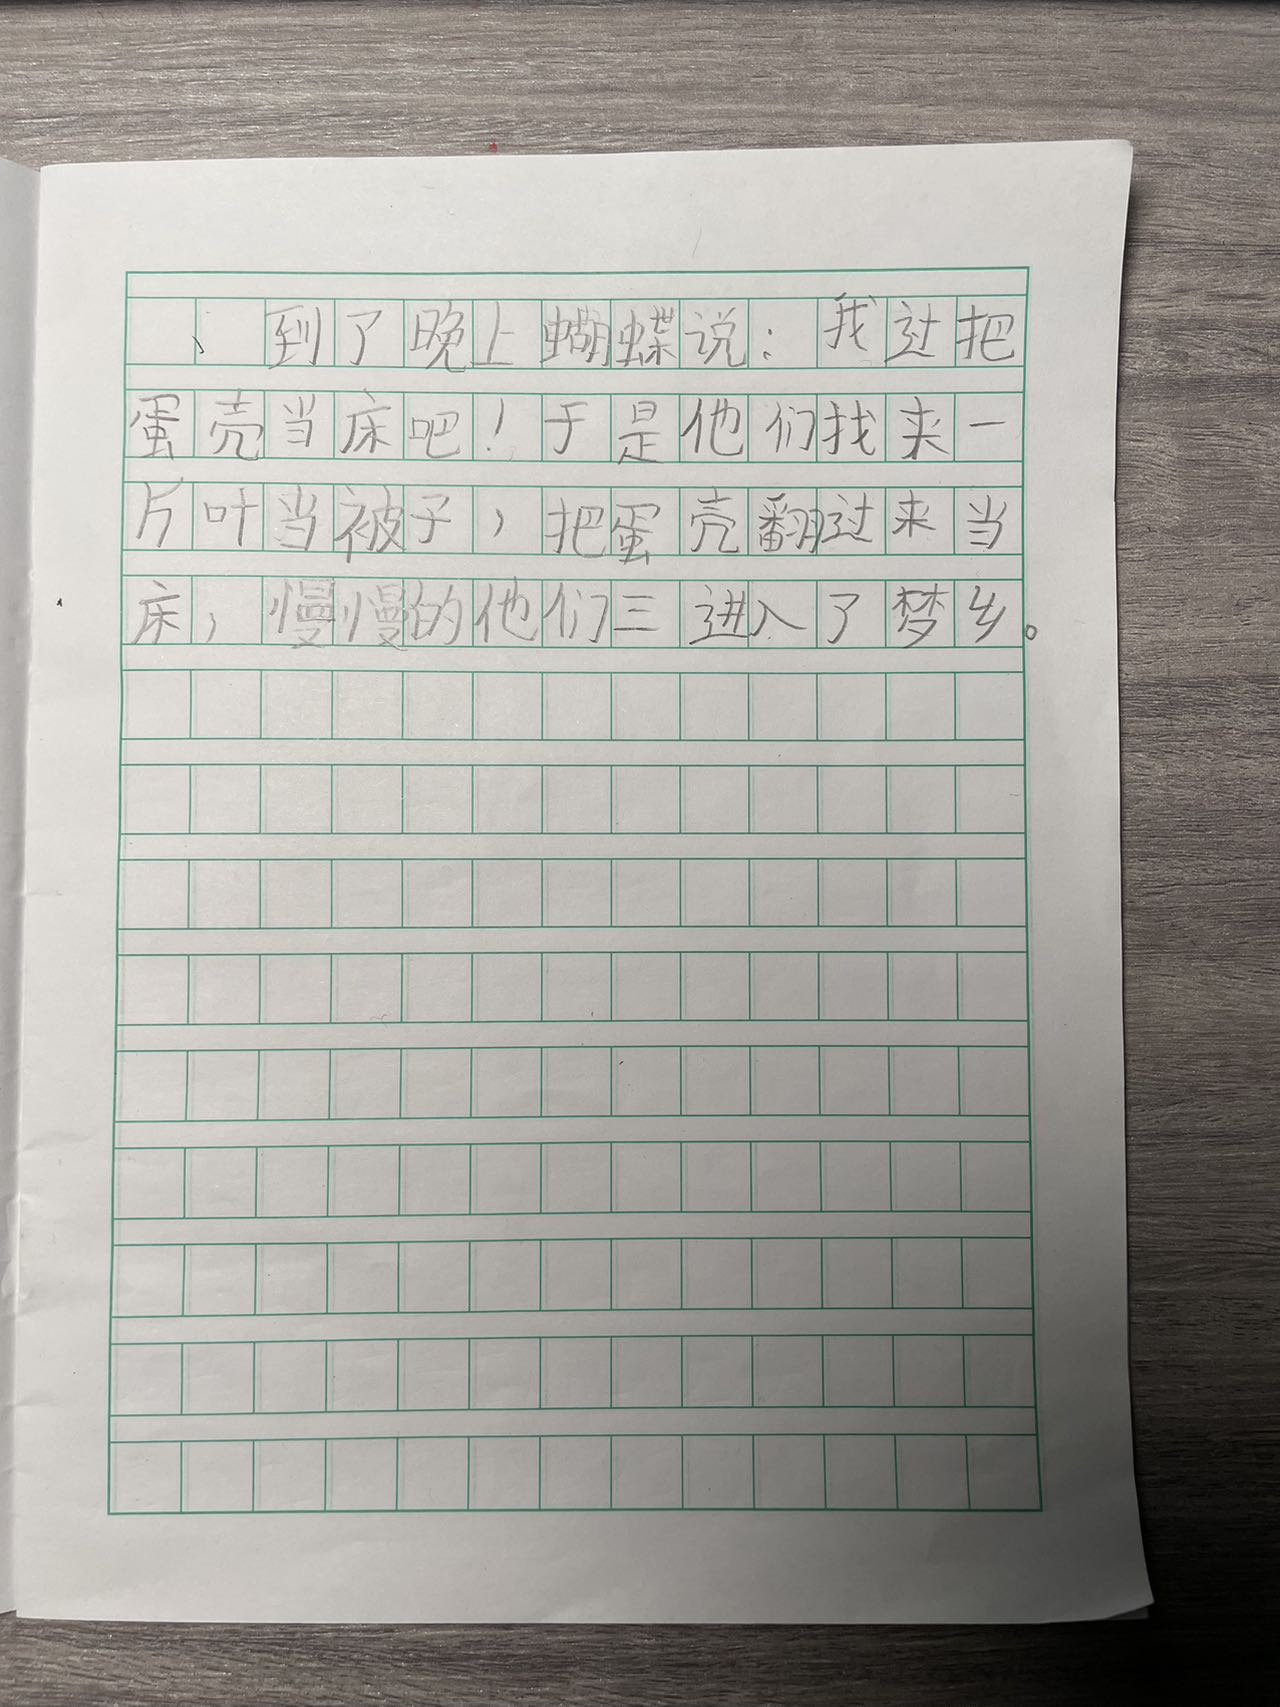 、到了晚上蝴蝶说：我过把
蛋壳当床吧！于是他们找来一
片叶当被子，把蛋壳翻过来当
床，慢慢的他们三进入了梦乡。